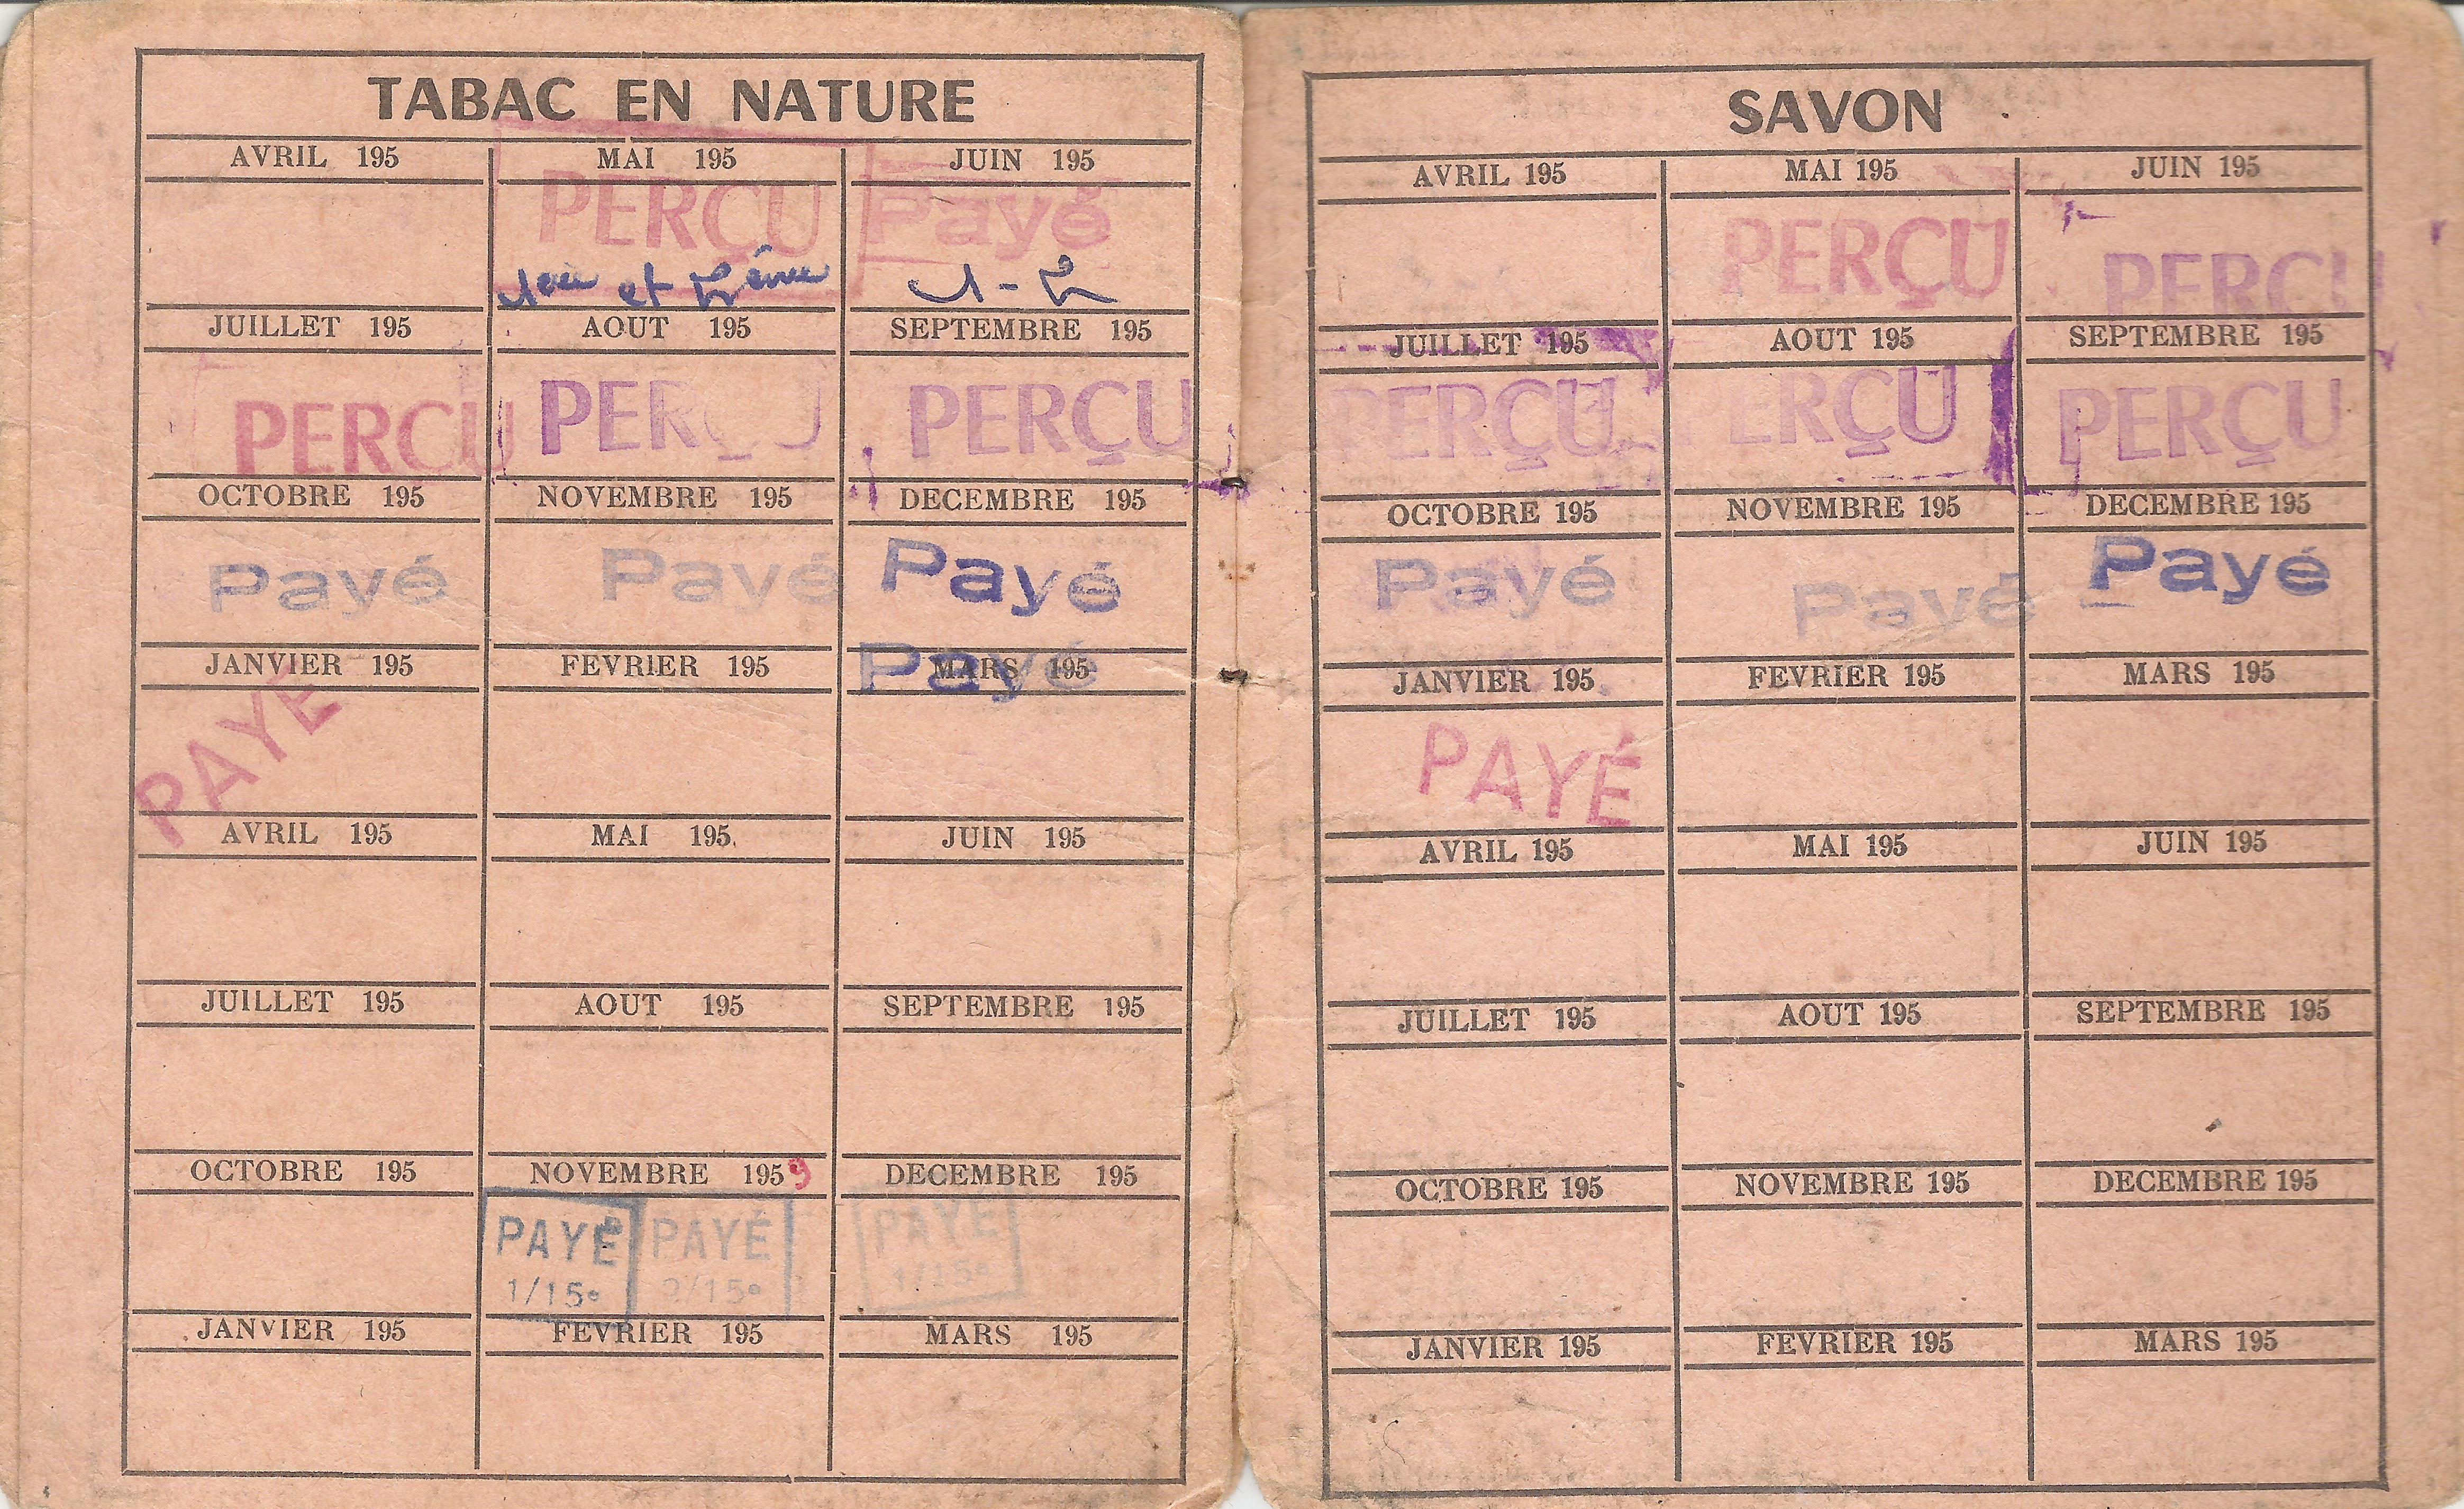 TABAC EN NATURE
AVRIL 195 MAI 195 JUIN 195
PERÇU Payé
1ère et 2ème 1 - 2
JUILLET 195 AOUT 195 SEPTEMBRE 195
PERÇU PERÇU PERÇU
OCTOBRE 195 NOVEMBRE 195 DECEMBRE 195
Payé Payé Payé
JANVIER 195 FEVRIER 195 MARS 195
Payé
PAYÉ
AVRIL 195 MAI 195 JUIN 195
JUILLET 195 AOUT 195 SEPTEMBRE 195
OCTOBRE 195 NOVEMBRE 1959 DECEMBRE 195
PAYÉ PAYÉ PAYÉ
1/15e 2/15e 1/15e
JANVIER 195 FEVRIER 195 MARS 195
SAVON
AVRIL 195 MAI 195 JUIN 195
PERÇU PERÇU
JUILLET 195 AOUT 195 SEPTEMBRE 195
PERÇU PERÇU PERÇU
OCTOBRE 195 NOVEMBRE 195 DECEMBRE 195
Payé Payé Payé
JANVIER 195 FEVRIER 195 MARS 195
PAYÉ
AVRIL 195 MAI 195 JUIN 195
JUILLET 195 AOUT 195 SEPTEMBRE 195
OCTOBRE 195 NOVEMBRE 195 DECEMBRE 195
JANVIER 195 FEVRIER 195 MARS 195